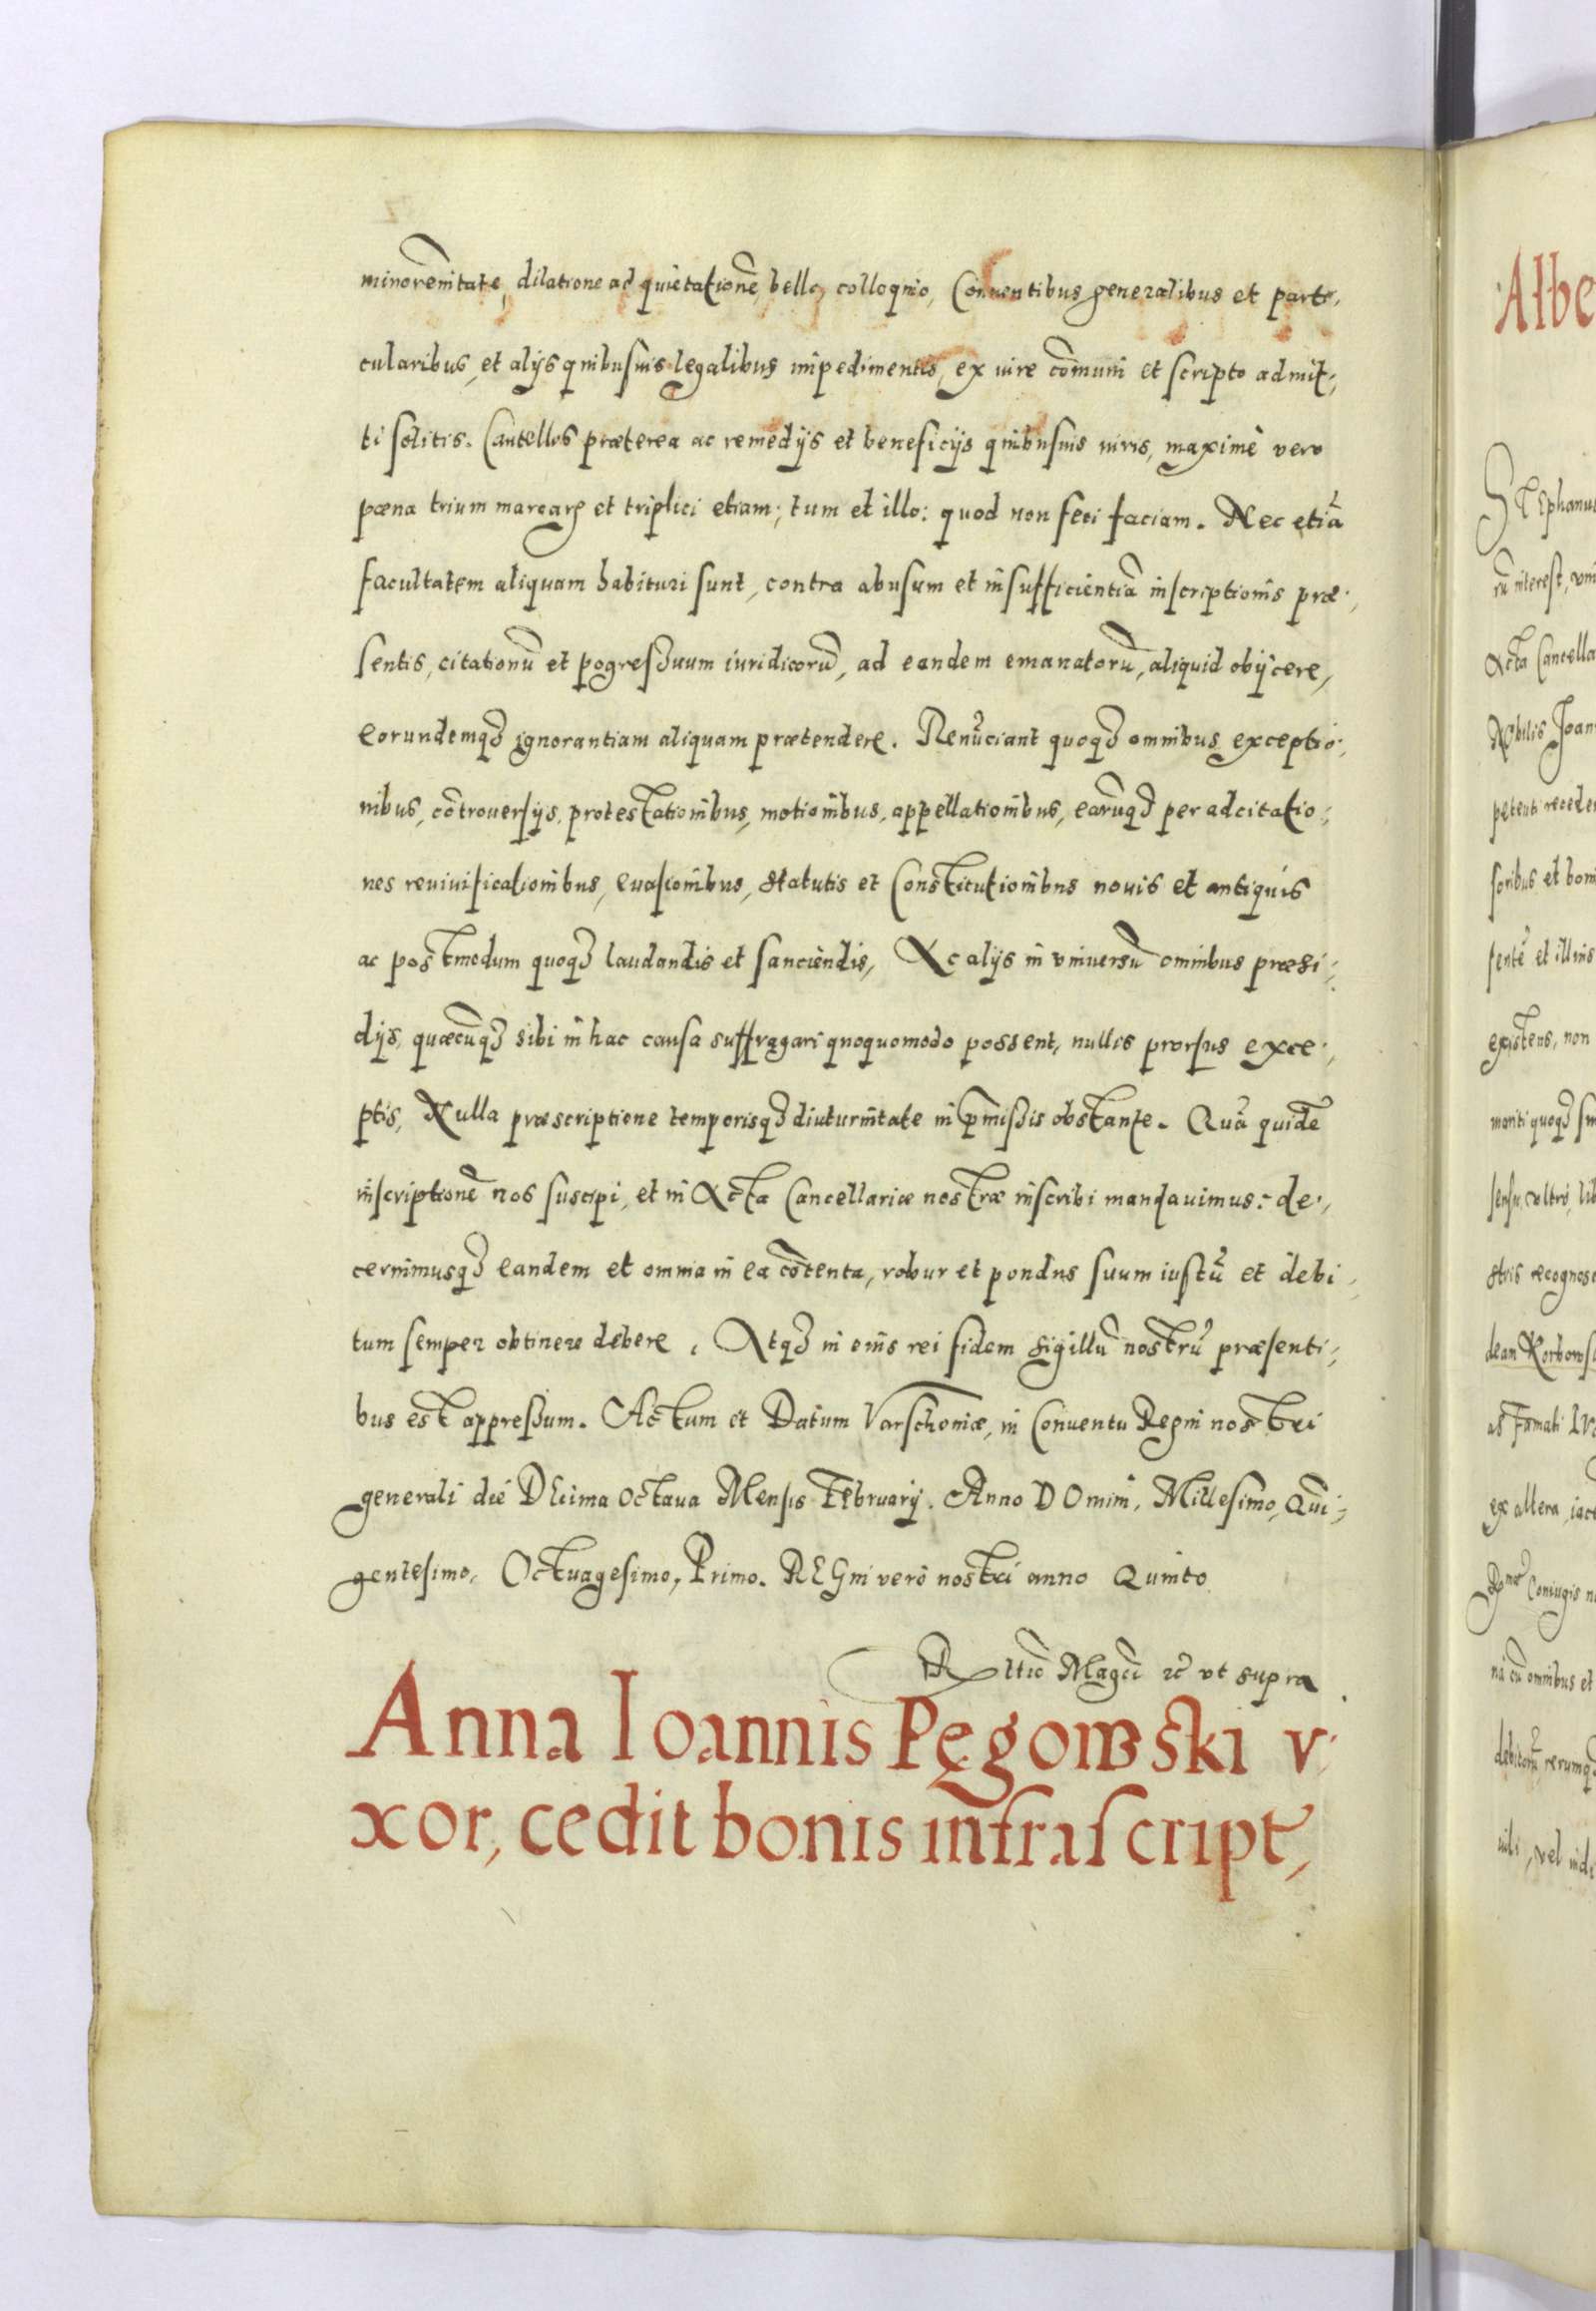 minorēnitate, dilatione ad quietationē, bello, colloquio, Conuentibus generalibus et parti,
cularibus, et alijs quibusuis legalibus impedimentis, ex iure cōmuni et scripto admit,
ti solitis. Cautellis præterea ac remedijs et beneficijs quibusuis iuris, maximè vero
pœna trium marcarꝝ et triplici etiam, tum et illo: quod non feci faciam. Nec etiā
facultatem aliquam habituri sunt, contra abusum et insufficientiā inscriptionis præ,
sentis, citationū et pogreßuum iuridicorū, ad eandem emanatorū, aliquid obijcere,
eorundemqꝫ ignorantiam aliquam prætendere. Renūciant quoqꝫ omnibus exceptio,
nibus, cōtrouersijs, protestationibus, motionibus, appellationibus, earūqꝫ per adcitatio,
nes reuiuificationibus, euasionibus, statutis et Constitutionibus nouis et antiquis
ac postmodum quoqꝫ laudandis et sanciendis, Ac alijs in vniuersū omnibus præsi,
dijs, quæcūqꝫ sibi in hac causa suffragari quoquomodo possent, nullis prorsus exce,
ptis, Nulla præscriptione temporisqꝫ diuturnitate in p̄mißis obstante. Quā quidē
inscriptionē nos suscipi, et in Acta Cancellariæ nostræ inscribi mandauimus: de,
cernimusqꝫ eandem et omnia in ea cōtenta, robur et pondus suum iustū et debi,
tum semper obtinere debere. Atqꝫ in eius rei fidem sigillū nostrū præsenti,
bus est appreßum. Actum et Datum Varschouiæ, in Conuentu Regni nostri
generali die DEcima Octaua Mensis FEbruarij. Anno DOmini, Millesimo, Qui,
gentesimo, Octuagesimo, Primo. REGni verò nostri anno Quinto
Rltio Magci ꝛc vt supra
Anna Ioannis Pęgowski v,
xor, cedit bonis infrascript,
Albe
STEphanus
rū interest, vni
Acta Cancella
Nobilis Joan
petenti recede
soribus et boni
sentē et illius
existens, non
mariti quoqꝫ su
sensu, vltrò, lib
stris recognosc
dean Korbowsc
as Famati
ex altera, iace
Coniugis
na cū omnibus et
debitorū rerumqꝫ
uili, vel iudi